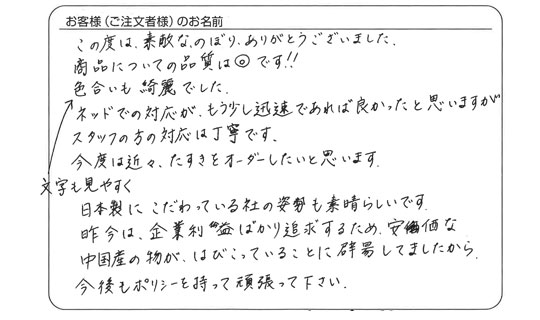 お客様(ご注文者様)のお名前
この度は、素敵な、のぼり、ありがとうございました.
商品についての品質は◎です!!
色合いも綺麗でした.
ネッドでの対応が、もう少し迅速であれば良かったと思いますが
スタッフの方の対応は丁寧です、
今度は近々、たすきをオーダーしたいと思います.
文字も見やすく
日本製にこだわっている社の姿勢も素晴らしいです.
昨今は、企業利益ばかり追求するため、安価な
中国産の物が、はびこっていることに辟易してましたから.
今後もポリシーを持って頑張って下さい.